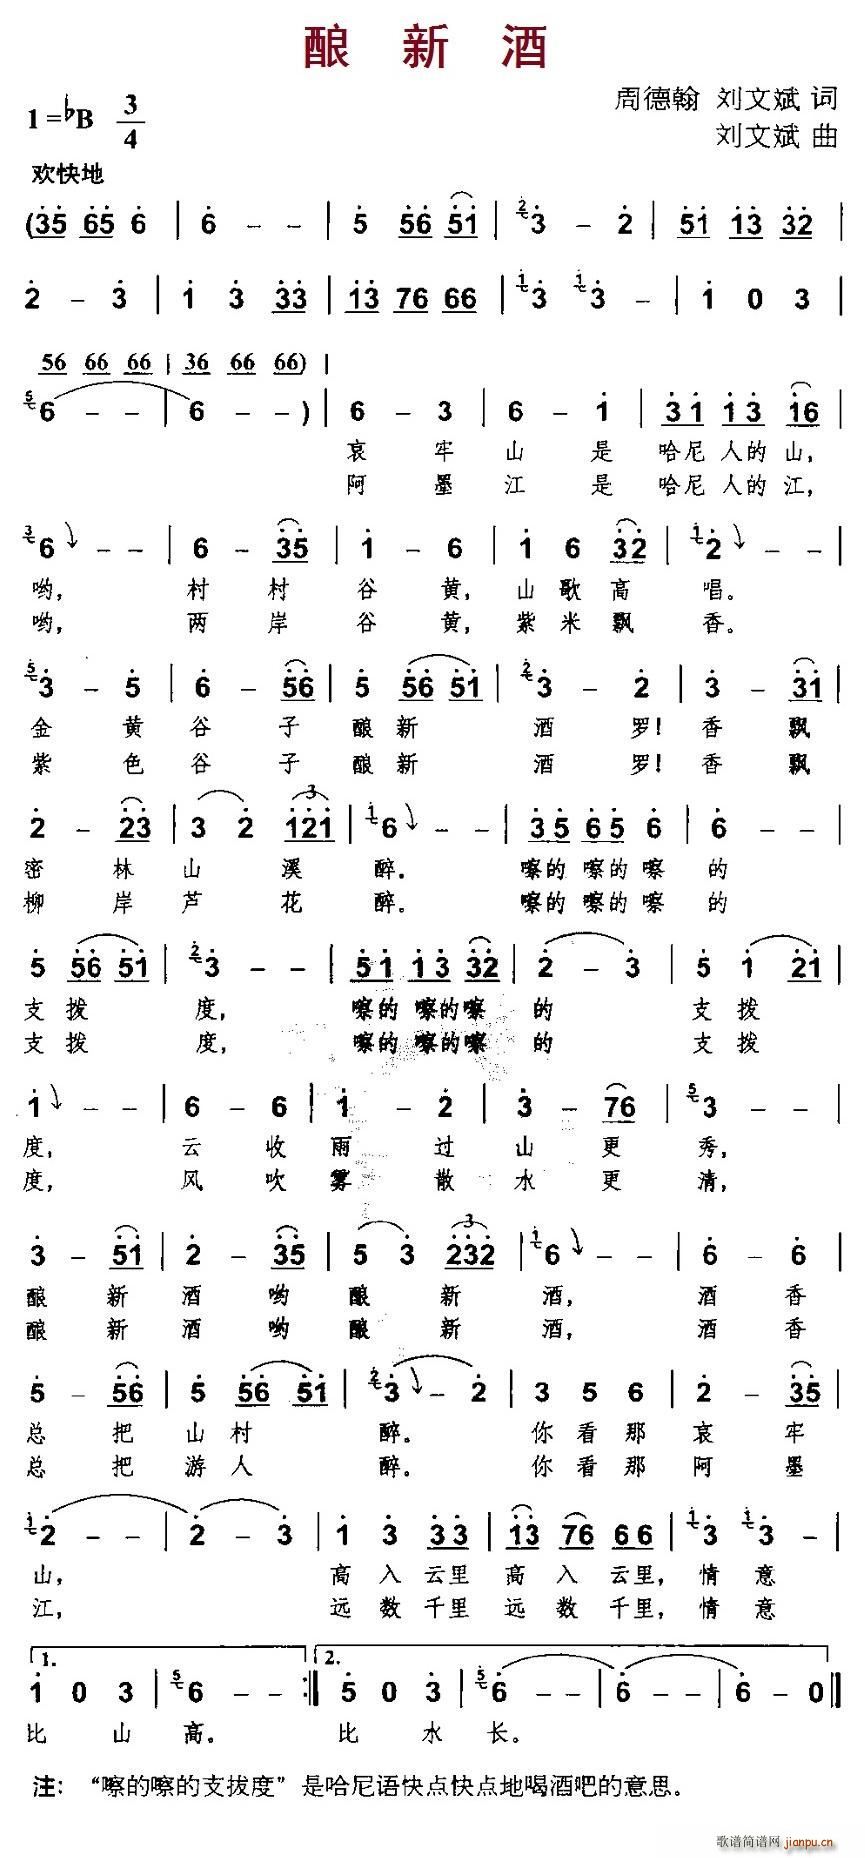 酿 新 酒
1=♭B 3/4
周德翰 刘文斌 词
刘文斌 曲
欢快地
(35 65 6 | 6 - - | 5 56 51 | 2 3 - 2 | 51 13 32 |
2 - 3 | 1 3 33 | 13 76 66 | 1 3 1 3 - | 1 0 3 |
56 66 66 | 36 66 66) |
5 6 - - | 6 - - ) | 6 - 3 | 6 - 1 | 31 13 16 |
哀 牢 山 是 哈尼 人的 山,
阿 墨 江 是 哈尼 人的 江,
3 6 - - | 6 - 35 | 1 - 6 | 1 6 32 | 1 2 - - |
哟, 村 村 谷 黄, 山 歌 高 唱。
哟, 两 岸 谷 黄, 紫 米 飘 香。
5 3 - 5 | 6 - 56 | 5 56 51 | 2 3 - 2 | 3 - 31 |
金 黄 谷 子 酿 新 酒 罗! 香 飘
紫 色 谷 子 酿 新 酒 罗! 香 飘
2 - 23 | 3 2 121 | 1 6 - - | 35 65 6 | 6 - - |
密 林 山 溪 醉。 嚓的 嚓的 嚓 的
柳 岸 芦 花 醉。 嚓的 嚓的 嚓 的
5 56 51 | 2 3 - - | 51 13 32 | 2 - 3 | 5 1 21 |
支 拨 度, 嚓的 嚓的 嚓 的 支 拨
支 拨 度, 嚓的 嚓的 嚓 的 支 拨
1 - - | 6 - 6 | 1 - 2 | 3 - 76 | 5 3 - - |
度, 云 收 雨 过 山 更 秀,
度, 风 吹 雾 散 水 更 清,
3 - 51 | 2 - 35 | 5 3 232 | 1 6 - - | 6 - 6 |
酿 新 酒 哟 酿 新 酒, 酒 香
酿 新 酒 哟 酿 新 酒, 酒 香
5 - 56 | 5 56 51 | 2 3 - 2 | 3 5 6 | 2 - 35 |
总 把 山 村 醉。 你 看 那 哀 牢
总 把 游 人 醉。 你 看 那 阿 墨
1 2 - - | 2 - 3 | 1 3 33 | 13 76 66 | 1 3 1 3 - |
山, 高 入 云里 高 入 云里, 情 意
江, 远 数 千里 远 数 千里, 情 意
1. 2.
1 0 3 | 5 6 - - :| 5 0 3 | 5 6 - - | 6 - - | 6 - 0 ‖
比 山 高。 比 水 长。
注: “嚓的嚓的支拔度”是哈尼语快点快点地喝酒吧的意思。
歌谱简谱网 jianpu.cn